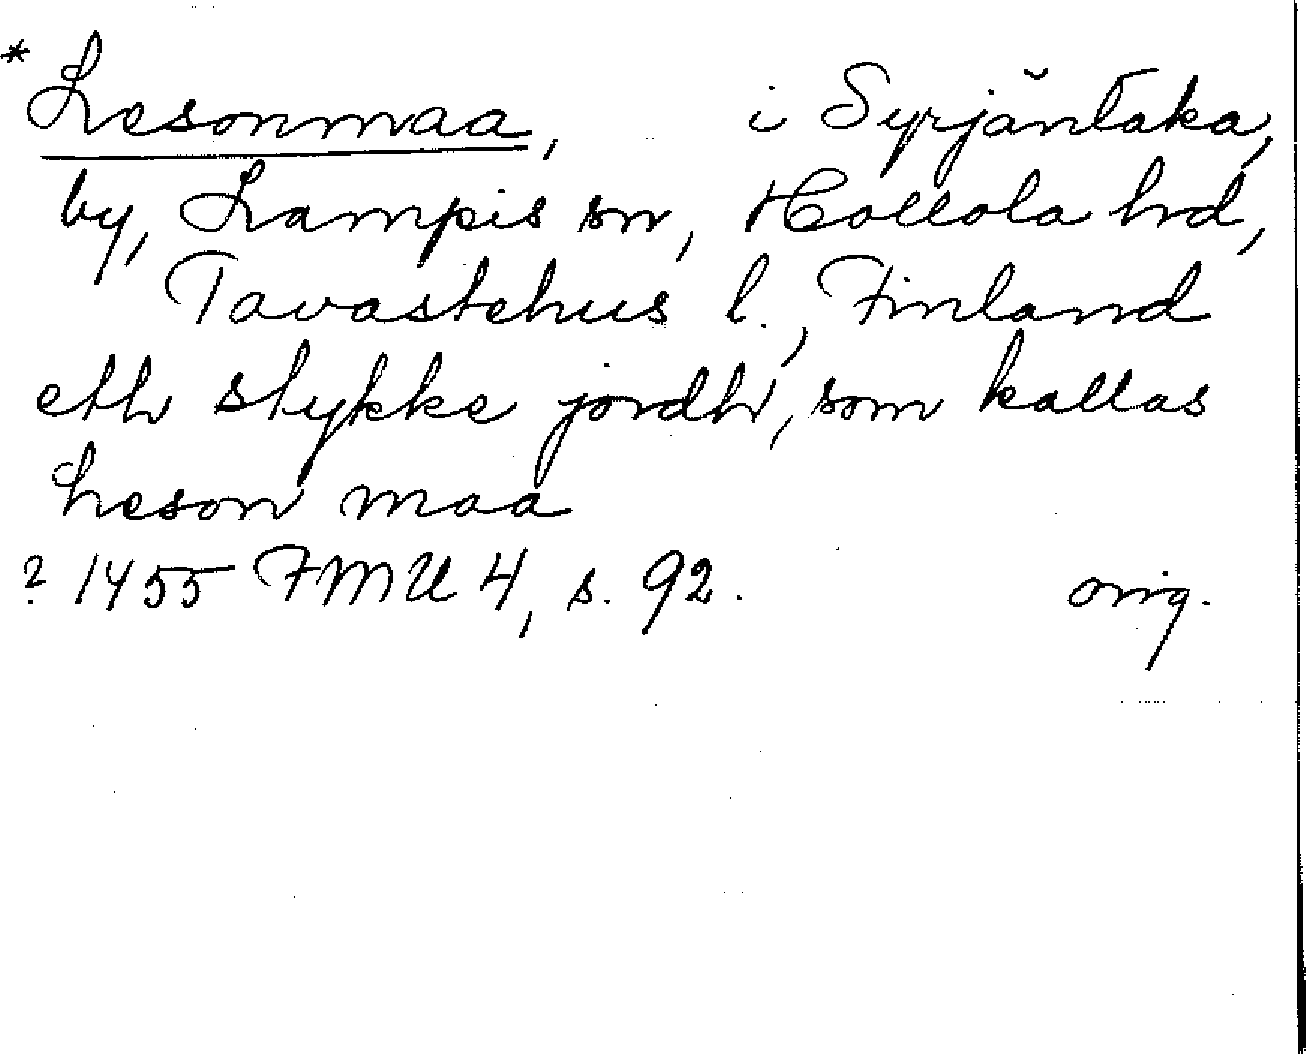 * Lesonmaa, i Syrjäntaka,
by, Lampis sn, Hollola hrd,
Tavastehus l., Finland
eth stykke jordh, som kallas
Leson maa
? 1455 FMU 4, s. 92. orig.